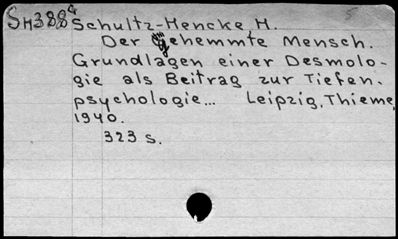 SH388a Schultz-Hencke H.
Der gehemmte Mensch.
Grundlagen einer Desmolo-
gie als Beitrag zur Tiefen.
psychologie... Leipzig, Thieme,
1940.
323 s.